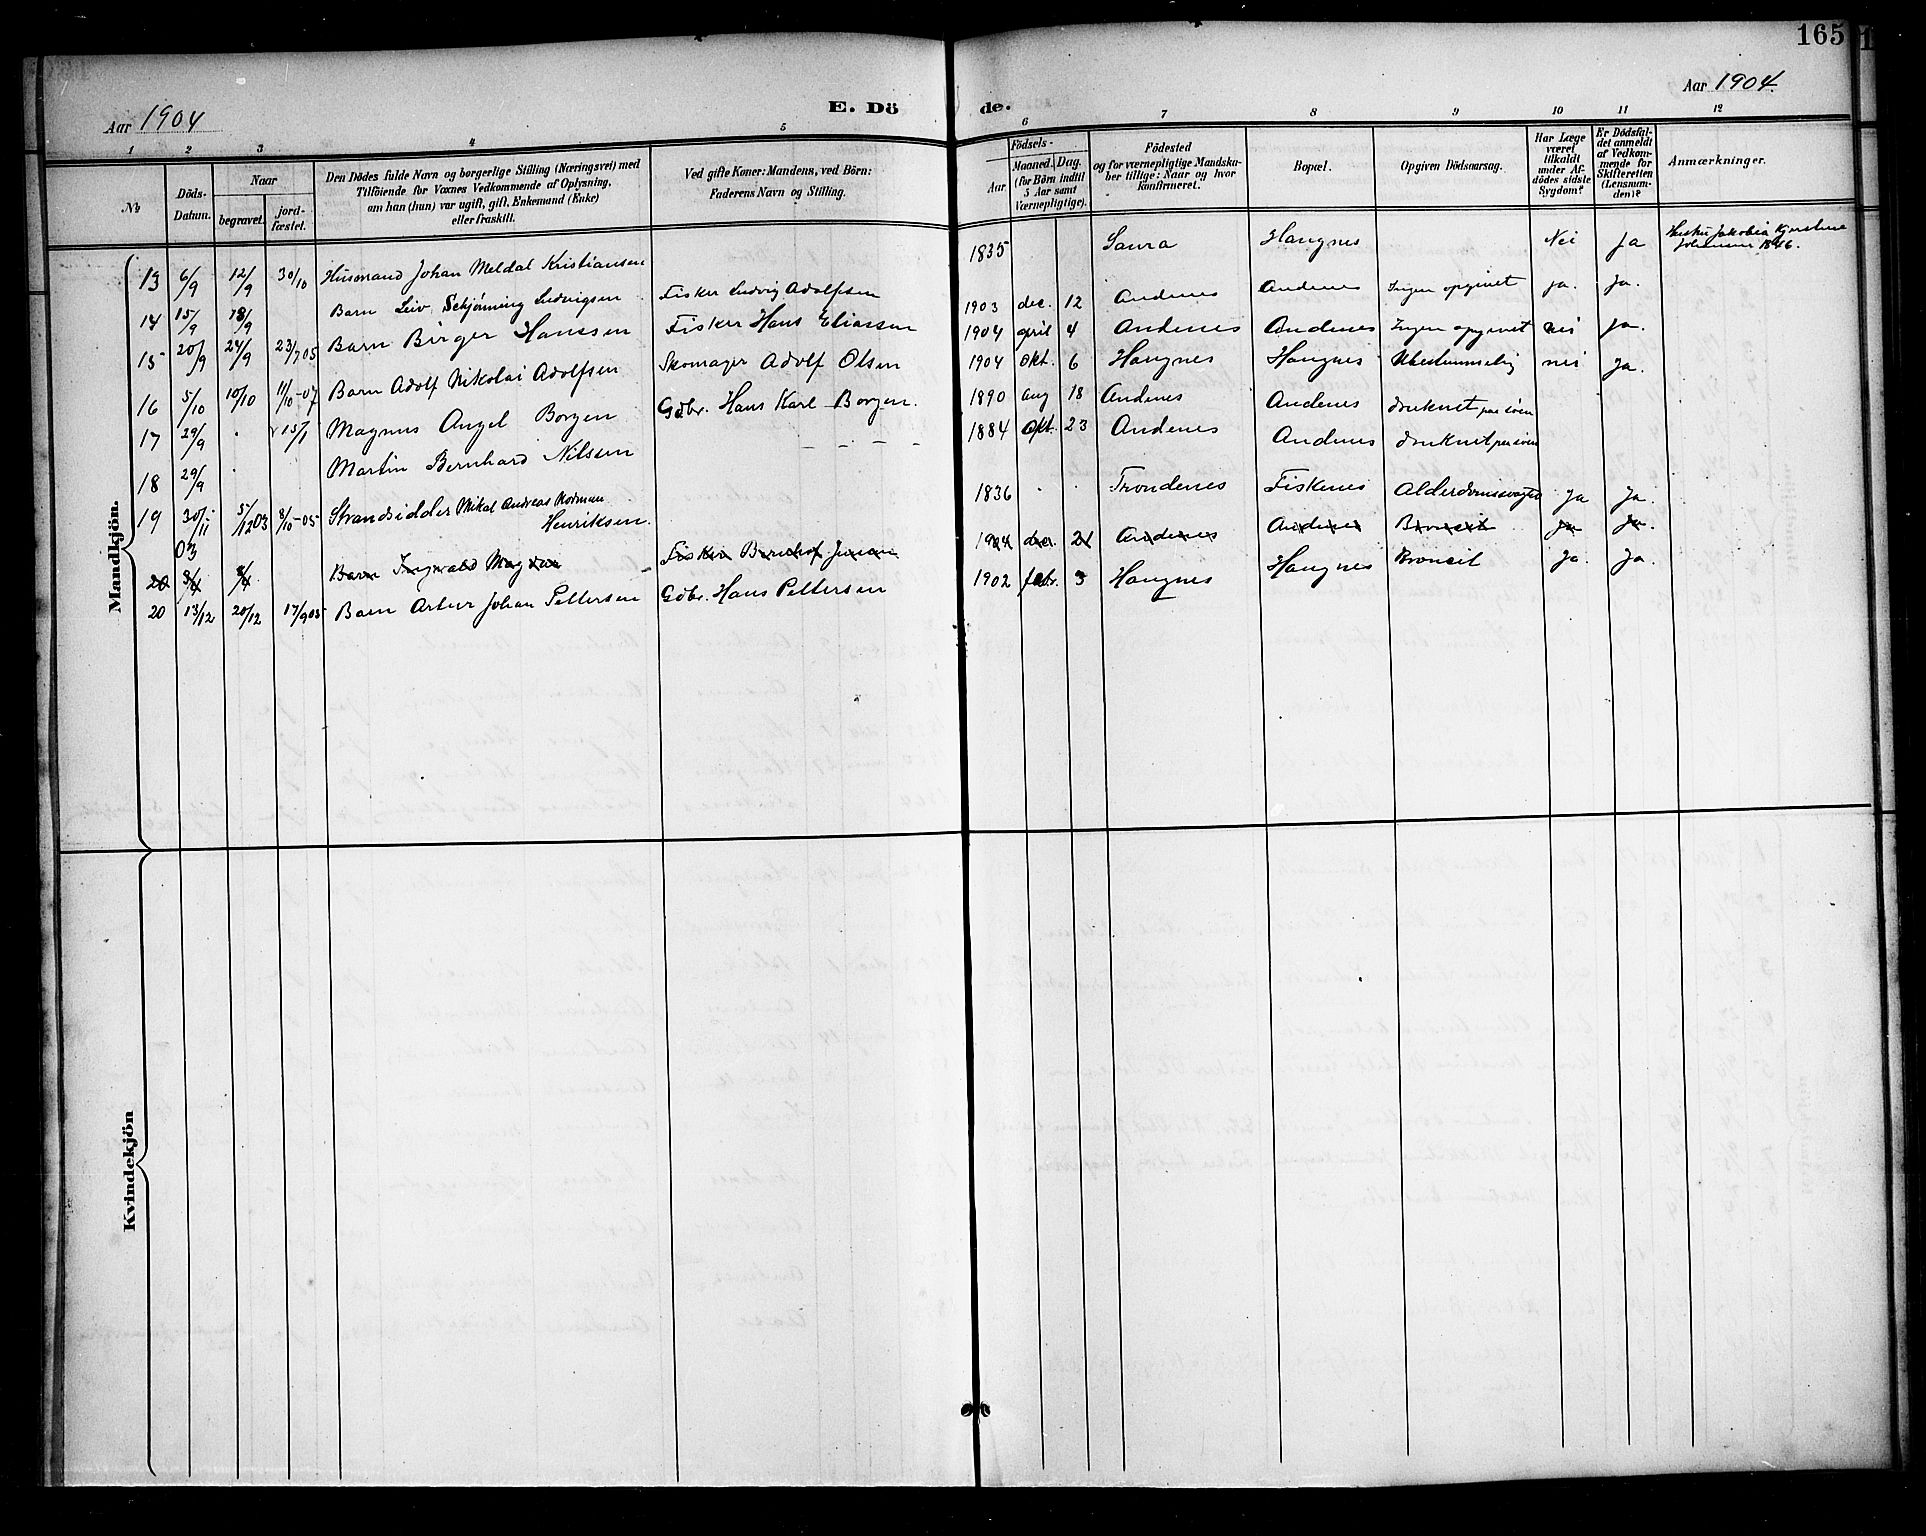 165
Aar 1904
E. Dö de.
Aar 1904.
1 2 3 4 5 6 7 8 9 10 11 12
No
Döds-Datum.
Naar
begravet.
jord-fæstet.
Den Dödes fulde Navn og borgerlige Stilling (Næringsvei) med
Tilföiende for Voxnes Vedkommende af Oplysning,
om han (hun) var ugift, gift, Enkemand (Enke)
eller fraskilt.
Ved gifte Koner: Mandens, ved Börn:
Faderens Navn og Stilling.
Födsels-
Aar
Maaned. Dag.
(for Börn indtil
5 Aar samt
Værnepligtige).
Födested
og for værnepligtige Mandska-
ber tillige: Naar og hvor
konfirmeret.
Bopæl.
Opgiven Dödsaarsag.
Har Læge
været
tilkaldt
under Af-
dödes sidste
Sygdom?
Er Dödsfal-
det anmeldt
af Vedkom-
mende for
Skifteretten
(Lensman-
den)?
Anmærkninger.
Mandkjön.
13 6/9 12/9 30/10 Husmand Johan Meldal Kristiansen 1835 Saura Haugnes Nei Ja Hustru Jakobia Kjerstine
Johansen 1846.
14 15/9 18/9 Barn Leiv Schjönning Ludvigsen Fisker Ludvig Adolfsen 1903 dec. 12 Andenes Andenes Ingen opgivet ja. Ja.
15 20/9 24/9 23/7 05 Barn Birger Hanssen Fisker Hans Eliassen 1904 april 4 Andenes Andenes Ingen opgivet nei ja.
16 5/10 10/10 11/10-07 Barn Adolf Nikolai Adolfsen Skomager Adolf Olsen 1904 okt. 6 Haugnes Haugnes Ubestemmelig nei Ja.
17 29/9 15/1 Magnus Angel Borgen Gdbr. Hans Karl Borgen. 1890 aug 18 Andenes Andenes druknet paa söen
18 29/9 Martin Bernhard Nilsen 1884 Okt. 23 Andenes Andenes druknet paa söen
19 30/11 03 5/12 03 8/10-05 Strandsidder Mikal Andreas Normann
Henriksen. 1836 Trondenes Fiskenes Alderdomssvaghed Ja Ja.
20 8/4 8/4 Barn Ingvald Magnus Fisker Bernhof Jensen 1904 21 Andenes Andenes Broncit Ja Ja.
20 13/12 20/12 17/9 05 Barn Artur Johan Pettersen Gdbr. Hans Pettersen 1902 febr. 3 Haugnes Haugnes Broncit Ja. Ja.
Kvindekjön